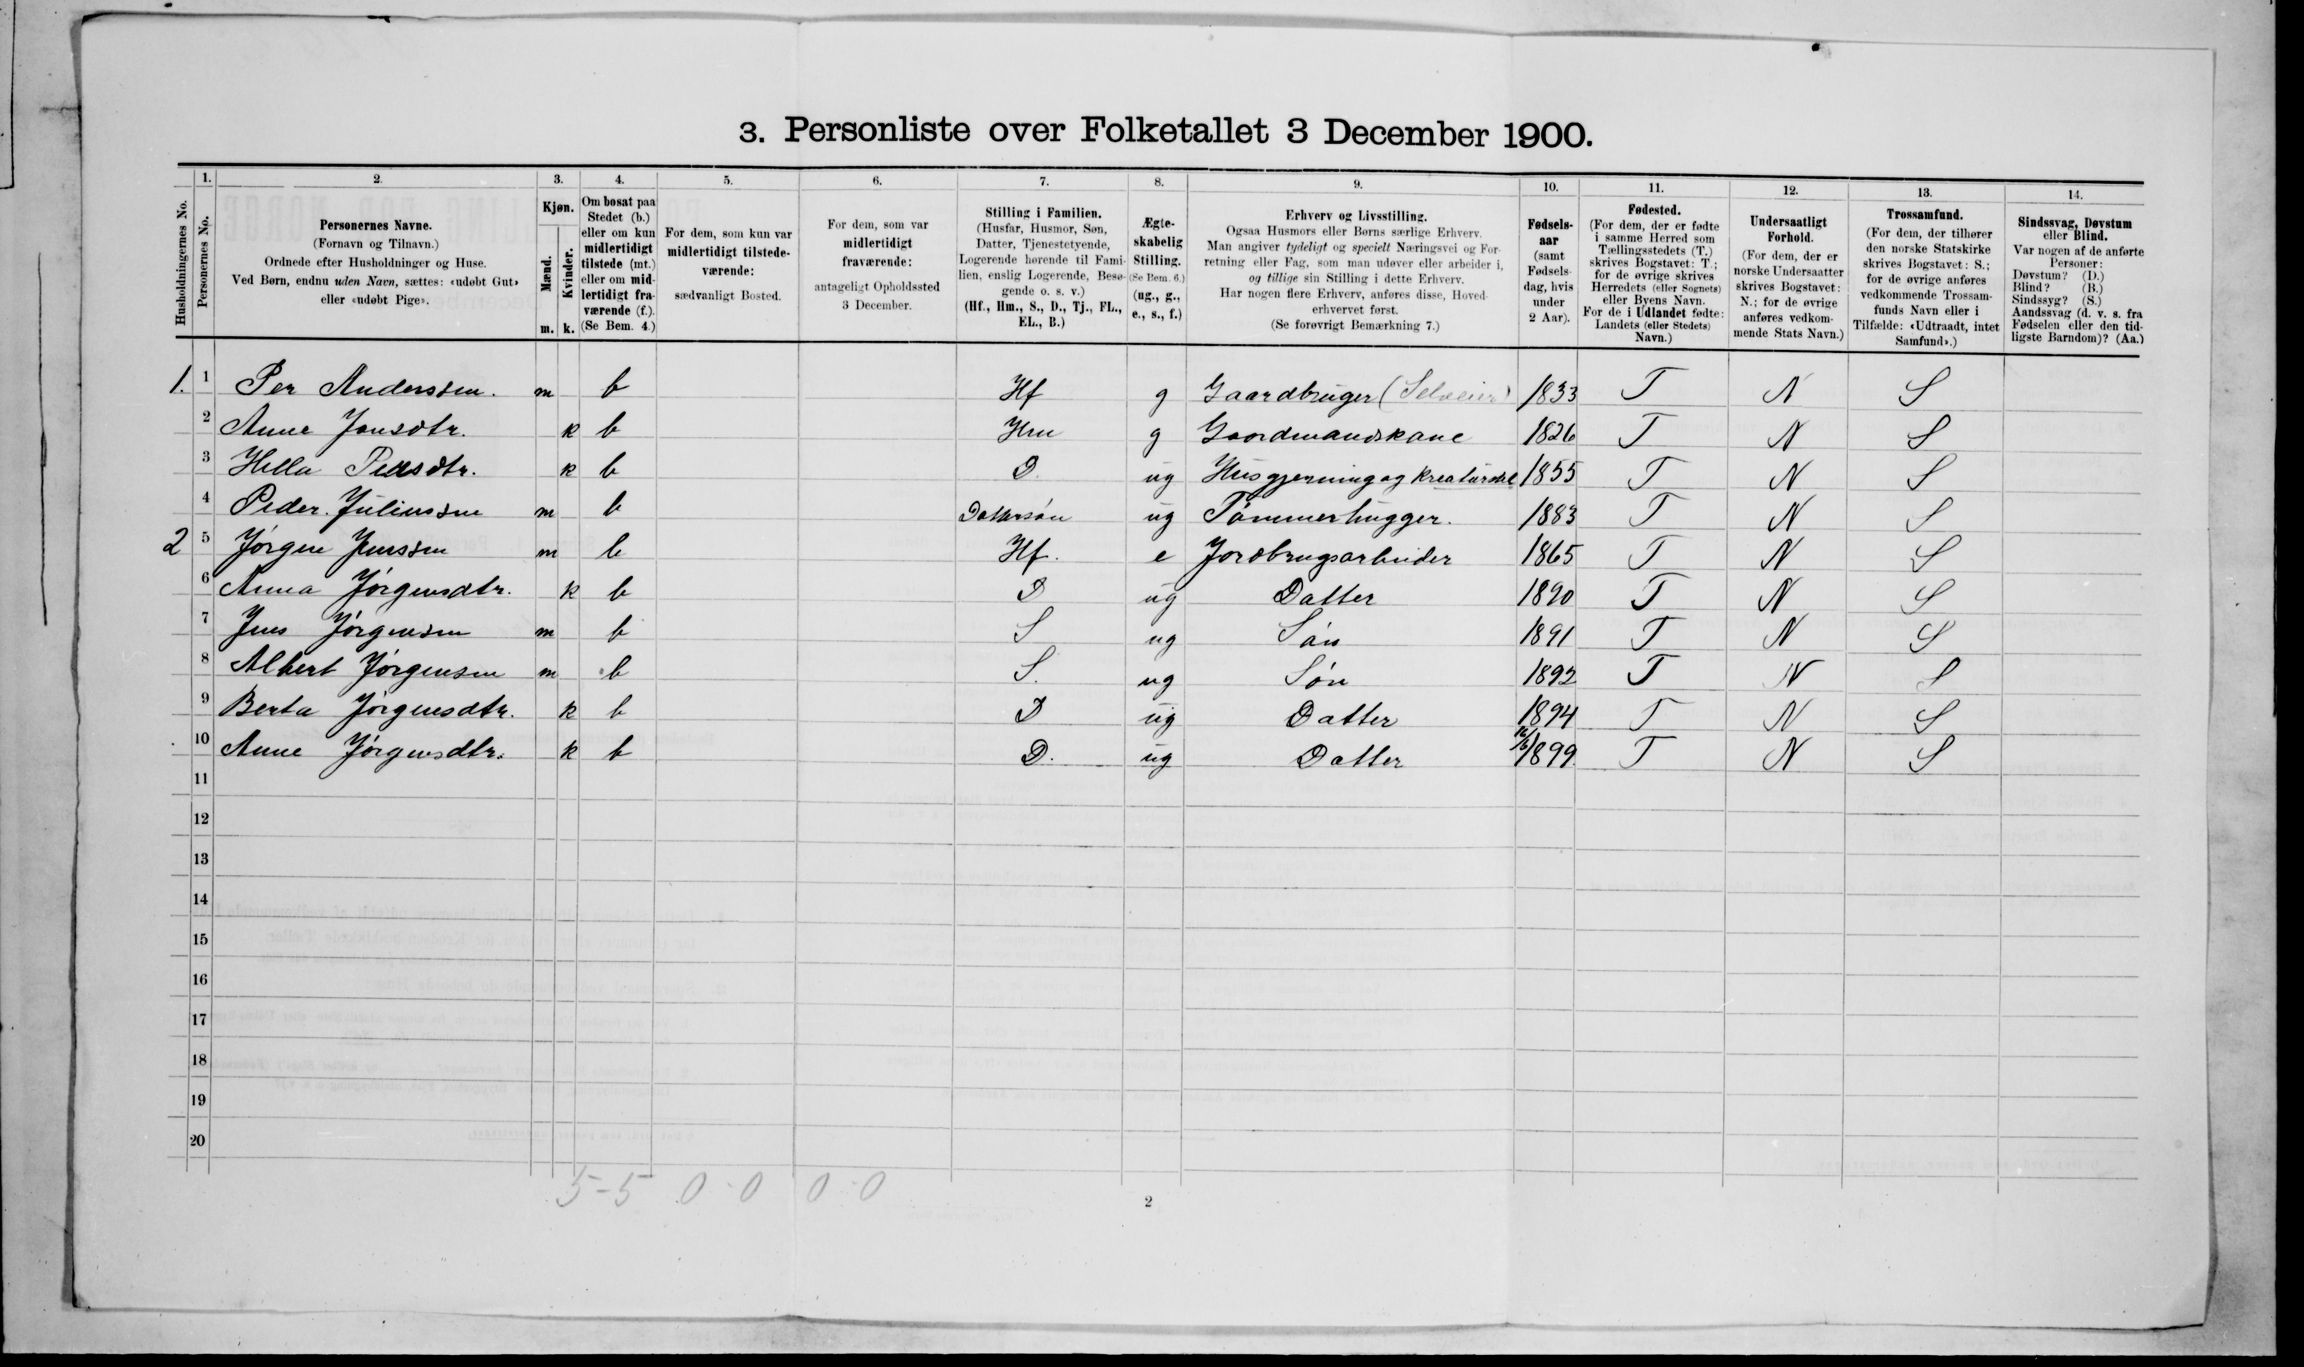 3. Personliste over Folketallet 3 December 1900.
1. 2. 3. 4. 5. 6. 7. 8. 9. 10. 11. 12. 13. 14.
Husholdningernes No.
Personernes No.
Personernes Navne.
(Fornavn og Tilnavn.)
Ordnede efter Husholdninger og Huse.
Ved Børn, endnu uden Navn, sættes: «udøbt Gut»
eller «udøbt Pige».
Kjøn.
Mænd.
Kvinder.
m. k.
Om bosat paa
Stedet (b.)
eller om kun
midlertidigt
tilstede (mt.)
eller om mid-
lertidigt fra-
værende (f.).
(Se Bem. 4.)
For dem, som kun var
midlertidigt tilstede-
værende:
sædvanligt Bosted.
For dem, som var
midlertidigt
fraværende:
antageligt Opholdssted
3 December.
Stilling i Familien.
(Husfar, Husmor, Søn,
Datter, Tjenestetyende,
Logerende hørende til Fami-
lien, enslig Logerende, Besø-
gende o. s. v.)
(Hf., Hm., S., D., Tj., FL.,
EL., B.)
Ægte-
skabelig
Stilling.
(Se Bem. 6.)
(ug., g.,
e., s., f.)
Erhverv og Livsstilling.
Ogsaa Husmors eller Børns særlige Erhverv.
Man angiver tydeligt og specielt Næringsvei og For-
retning eller Fag, som man udøver eller arbeider i,
og tillige sin Stilling i dette Erhverv.
Har nogen flere Erhverv, anføres disse, Hoved-
erhvervet først.
(Se forøvrigt Bemærkning 7.)
Fødsels-
aar
(samt
Fødsels-
dag, hvis
under
2 Aar).
Fødested.
(For dem, der er fødte
i samme Herred som
Tællingsstedets (T.)
skrives Bogstavet: T.;
for de øvrige skrives
Herredets (eller Sognets)
eller Byens Navn.
For de i Udlandet fødte:
Landets (eller Stedets)
Navn.)
Undersaatligt
Forhold.
(For dem, der er
norske Undersaatter
skrives Bogstavet:
N.; for de øvrige
anføres vedkom-
mende Stats Navn.)
Trossamfund.
(For dem, der tilhører
den norske Statskirke
skrives Bogstavet: S.;
for de øvrige anføres
vedkommende Trossam-
funds Navn eller i
Tilfælde: «Udtraadt, intet
Samfund».)
Sindssvag, Døvstum
eller Blind.
Var nogen af de anførte
Personer:
Døvstum? (D.)
Blind? (B.)
Sindssyg? (S.)
Aandssvag (d. v. s. fra
Fødselen eller den tid-
ligste Barndom)? (Aa.)
1. 1 Per Anderssen. m b Hf g Gaardbruger (Selveier) 1833 T N S
2 Anne Jonsdtr. k b Hm g Gaardmandskone 1826 T N S
3 Hella Pedsdtr. k b D. ug Husgjerning og kreaturstel 1855 T N S
4 Peder Juliussen m b Dattersøn ug Tømmerhugger. 1883 T N S
2 5 Jørgen Jenssen m b Hf. e Jordbrugsarbeider 1865 T N S
6 Anna Jørgensdtr. k b D ug Datter 1890 T N S
7 Jens Jørgensen m b S ug Søn 1891 T N S
8 Albert Jørgensen m b S. ug Søn 1892 T N S
9 Berta Jørgensdtr. k b D ug Datter 1894 T N S
10 Anne Jørgensdtr. k b D. ug Datter 1899 T N S
11
12
13
14
15
16
17
18
19
20
5-5 0-0 0-0
2